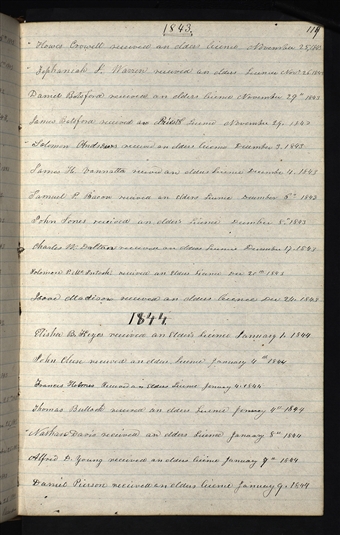 1843. 119
Howes Crowell received an elders license November 25, 1843
Zephaniah S. Warren received an elders license Nov. 26 1843
Daniel Botsford received an elders license November 29th 1843
James Botsford received an Priests license November 29. 1843
Solomon Anderson received an elders license December 3. 1843
James H. Vannatta received an elders license December 4. 1843
Samuel P. Bacon received an elders license December 5th 1843
John Jones received an elders license December 8th 1843
Charles W. Dalton received an elders license December 17. 1843
Solomon received an elders license Dec 20th 1843
Isaac Madison received an elders license Dec 24. 1843
1844.
Elisha B. received an elders license January 1. 1844
John received an elders license January 4th 1844
Francis received an elders license January 4. 1844
Thomas Bullock received an elders license January 4th 1844
Nathan Davis received an elders license January 8th 1844
Alfred D. Young received an elders license January 9th 1844
Daniel Pierson received an elders license January 9. 1844